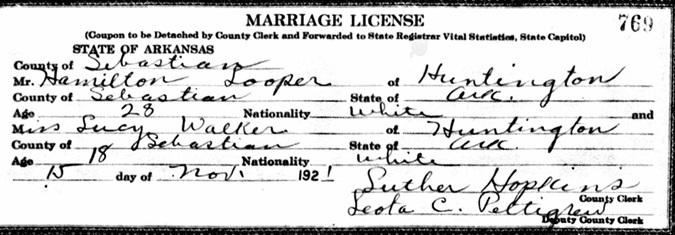 MARRIAGE LICENSE 769
(Coupon to be Detached by County Clerk and Forwarded to State Registrar Vital Statistics, State Capitol)
STATE OF ARKANSAS
County of Sebastian
Mr. Hamilton Looper of Huntington
County of Sebastian State of Ark.
Age 28 Nationality White and
Miss Lucy Walker of Huntington
County of Sebastian State of Ark.
Age 18 Nationality White
15 day of Nov. 1921
Luther Hopkins
County Clerk
Leota C. Pettigrew
Deputy County Clerk